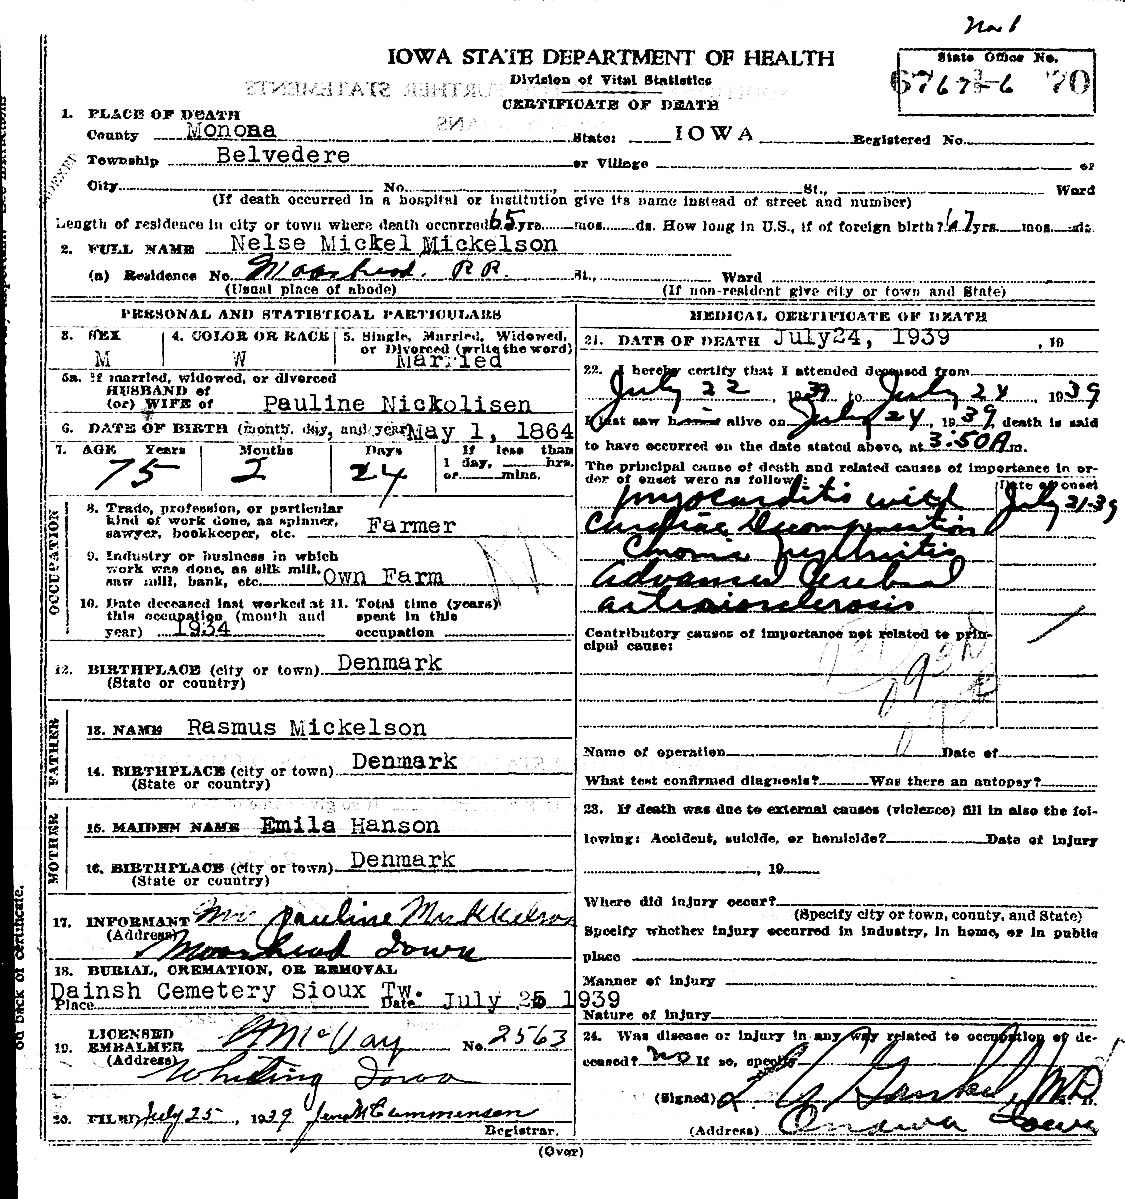 No. 1
IOWA STATE DEPARTMENT OF HEALTH
State Office No.
Division of Vital Statistics
CERTIFICATE OF DEATH
1. PLACE OF DEATH
County Monona State: IOWA Registered No.
Township Belvedere or Village or
City No. St., Ward
(If death occurred in a hospital or institution give its name instead of street and number)
Length of residence in city or town where death occurred 65 yrs. mos. ds. How long in U.S., if of foreign birth? 67 yrs. mos. ds.
2. FULL NAME Nelse Mickel Mickelson
(a) Residence No. Moorhead. R R. St., Ward
(Usual place of abode) (If non-resident give city or town and State)
PERSONAL AND STATISTICAL PARTICULARS
3. SEX 4. COLOR OR RACE 5. Single, Married, Widowed,
or Divorced (write the word)
M W Married
5a. If married, widowed, or divorced
HUSBAND of
(or) WIFE of Pauline Nickolisen
6. DATE OF BIRTH (month, day, and year) May 1, 1864
7. AGE Years Months Days If less than
1 day, hrs.
or mins.
75 2 24
OCCUPATION
8. Trade, profession, or particular
kind of work done, as spinner,
sawyer, bookkeeper, etc. Farmer
9. Industry or business in which
work was done, as silk mill,
saw mill, bank, etc. Own Farm
10. Date deceased last worked at
this occupation (month and
year) 1934
11. Total time (years)
spent in this
occupation
12. BIRTHPLACE (city or town) Denmark
(State or country)
FATHER
13. NAME Rasmus Mickelson
14. BIRTHPLACE (city or town) Denmark
(State or country)
MOTHER
15. MAIDEN NAME Emila Hanson
16. BIRTHPLACE (city or town) Denmark
(State or country)
17. INFORMANT Mrs Pauline Mickkelson
(Address) Moorhead Iowa
18. BURIAL, CREMATION, OR REMOVAL
Place Dainsh Cemetery Sioux Tw. Date July 25 1939
19. LICENSED
EMBALMER McVay No. 2563
(Address) Whiting Iowa
20. FILED July 25, 1939
Registrar.
MEDICAL CERTIFICATE OF DEATH
21. DATE OF DEATH July24, 1939 , 19
22. I hereby certify that I attended deceased from
July 22 1939 to July 24 1939
I last saw him alive on July 24, 1939, death is said
to have occurred on the date stated above, at 3:50A m.
The principal cause of death and related causes of importance in or-
der of onset were as follows: Date of onset
Myocarditis with July 21-39
Cardiac Decompensation
Chronic Nephritis
Advanced Cerebral
arteriosclerosis
Contributory causes of importance not related to prin-
cipal cause:
Name of operation Date of
What test confirmed diagnosis? Was there an autopsy?
23. If death was due to external causes (violence) fill in also the fol-
lowing: Accident, suicide, or homicide? Date of injury
, 19
Where did injury occur?
(Specify city or town, county, and State)
Specify whether injury occurred in industry, in home, or in public
place
Manner of injury
Nature of injury
24. Was disease or injury in any way related to occupation of de-
ceased? No If so, specify
(Signed) M. D.
(Address) Onawa Iowa
(Over)
on back of certificate.